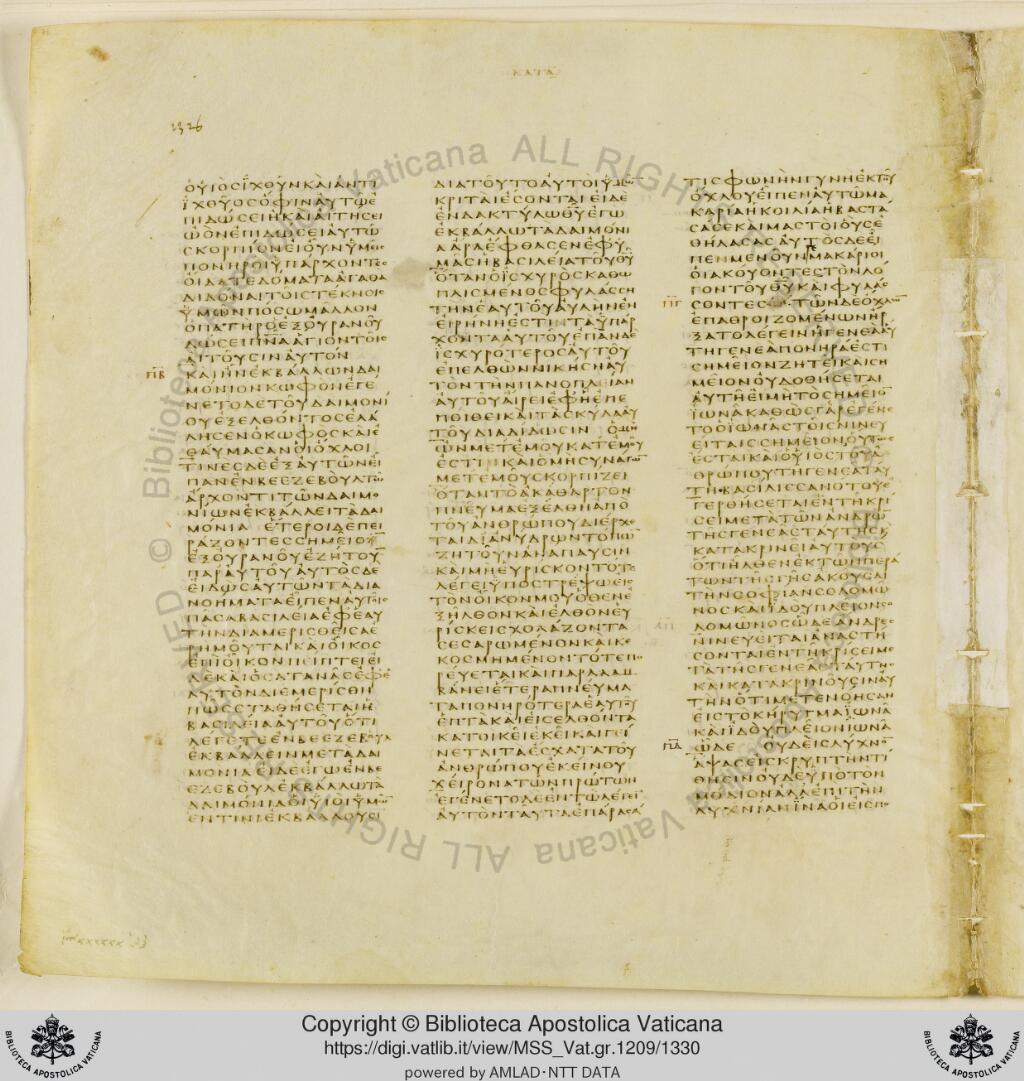 ΚΑΤΑ
1326
ΟΥΙΟϹΙΧΘΥΝΚΑΙΑΝΤΙ
ΙΧΘΥΟϹΟΦΙΝΑΥΤΩΕ
ΠΙΔΩϹΕΙΗΚΑΙΑΙΤΗϹΕΙ
ΩΟΝΕΠΙΔΩϹΕΙΑΥΤΩ
ϹΚΟΡΠΙΟΝΕΙΟΥΝΥΜΕΙϹ
ΠΟΝΗΡΟΙΥΠΑΡΧΟΝΤΕϹ
ΟΙΔΑΤΕΔΟΜΑΤΑΑΓΑΘΑ
ΔΙΔΟΝΑΙΤΟΙϹΤΕΚΝΟΙϹ
ΥΜΩΝΠΟϹΩΜΑΛΛΟΝ
ΟΠΑΤΗΡΟΕΞΟΥΡΑΝΟΥ
ΔΩϹΕΙΠΝΑΑΓΙΟΝΤΟΙϹ
ΑΙΤΟΥϹΙΝΑΥΤΟΝ
ΚΑΙΗΝΕΚΒΑΛΛΩΝΔΑΙ
ΜΟΝΙΟΝΚΩΦΟΝΕΓΕ
ΝΕΤΟΔΕΤΟΥΔΑΙΜΟΝΙ
ΟΥΕΞΕΛΘΟΝΤΟϹΕΛΑ
ΛΗϹΕΝΟΚΩΦΟϹΚΑΙΕ
ΘΑΥΜΑϹΑΝΟΙΟΧΛΟΙ
ΤΙΝΕϹΔΕΕΞΑΥΤΩΝΕΙ
ΠΑΝΕΝΒΕΕΖΕΒΟΥΛΤΩ
ΑΡΧΟΝΤΙΤΩΝΔΑΙΜΟ
ΝΙΩΝΕΚΒΑΛΛΕΙΤΑΔΑΙ
ΜΟΝΙΑ ΕΤΕΡΟΙΔΕΠΕΙ
ΡΑΖΟΝΤΕϹϹΗΜΕΙΟΝ
ΕΞΟΥΡΑΝΟΥΕΖΗΤΟΥΝ
ΠΑΡΑΥΤΟΥΑΥΤΟϹΔΕ
ΕΙΔΩϹΑΥΤΩΝΤΑΔΙΑ
ΝΟΗΜΑΤΑΕΙΠΕΝΑΥΤΟΙϹ
ΠΑϹΑΒΑϹΙΛΕΙΑΕΦΕΑΥ
ΤΗΝΔΙΑΜΕΡΙϹΘΕΙϹΑΕ
ΡΗΜΟΥΤΑΙΚΑΙΟΙΚΟϹ
ΕΠΙΟΙΚΟΝΠΕΙΠΤΕΙΕΙ
ΔΕΚΑΙΟϹΑΤΑΝΑϹΕΦΕ
ΑΥΤΟΝΔΙΕΜΕΡΙϹΘΗ
ΠΩϹϹΤΑΘΗϹΕΤΑΙΗ
ΒΑϹΙΛΕΙΑΑΥΤΟΥΟΤΙ
ΛΕΓΕΤΕΕΝΒΕΕΖΕΒΟΥΛ
ΕΚΒΑΛΛΕΙΝΜΕΤΑΔΑΙ
ΜΟΝΙΑΕΙΔΕΕΓΩΕΝΒΕ
ΕΖΕΒΟΥΛΕΚΒΑΛΛΩΤΑ
ΔΑΙΜΟΝΙΑΟΙΥΙΟΙΥΜΩΝ
ΕΝΤΙΝΙΕΚΒΑΛΛΟΥϹΙ
ΔΙΑΤΟΥΤΟΑΥΤΟΙΥΜΩΝ
ΚΡΙΤΑΙΕϹΟΝΤΑΙΕΙΔΕ
ΕΝΔΑΚΤΥΛΩΘΥΕΓΩ
ΕΚΒΑΛΛΩΤΑΔΑΙΜΟΝΙ
ΑΑΡΑΕΦΘΑϹΕΝΕΦΥ
ΜΑϹΗΒΑϹΙΛΕΙΑΤΟΥΘΥ
ΟΤΑΝΟΙϹΧΥΡΟϹΚΑΘΩ
ΠΛΙϹΜΕΝΟϹΦΥΛΑϹϹΗ
ΤΗΝΕΑΥΤΟΥΑΥΛΗΝΕΝ
ΕΙΡΗΝΗΕϹΤΙΝΤΑΥΠΑΡ
ΧΟΝΤΑΑΥΤΟΥΕΠΑΝΔΕ
ΙϹΧΥΡΟΤΕΡΟϹΑΥΤΟΥ
ΕΠΕΛΘΩΝΝΙΚΗϹΗΑΥ
ΤΟΝΤΗΝΠΑΝΟΠΛΕΙΑΝ
ΑΥΤΟΥΑΙΡΕΙΕΦΗΕΠΕ
ΠΟΙΘΕΙΚΑΙΤΑϹΚΥΛΑΑΥ
ΤΟΥΔΙΑΔΙΔΩϹΙΝ ΟΜΗ
ΩΝΜΕΤΕΜΟΥΚΑΤΕΜΟΥ
ΕϹΤΙΝΚΑΙΟΜΗϹΥΝΑΓΩΝ
ΜΕΤΕΜΟΥϹΚΟΡΠΙΖΕΙ
ΟΤΑΝΤΟΑΚΑΘΑΡΤΟΝ
ΠΝΕΥΜΑΕΞΕΛΘΗΑΠΟ
ΤΟΥΑΝΘΡΩΠΟΥΔΙΕΡΧΕ
ΤΑΙΔΙΑΝΥΔΡΩΝΤΟΠΩΝ
ΖΗΤΟΥΝΑΝΑΠΑΥϹΙΝ
ΚΑΙΜΗΕΥΡΙϹΚΟΝΤΟΤΕ
ΛΕΓΕΙΥΠΟϹΤΡΕΨΩΕΙϹ
ΤΟΝΟΙΚΟΝΜΟΥΟΘΕΝΕ
ΞΗΛΘΟΝΚΑΙΕΛΘΟΝΕΥ
ΡΙϹΚΕΙϹΧΟΛΑΖΟΝΤΑ
ϹΕϹΑΡΩΜΕΝΟΝΚΑΙΚΕ
ΚΟϹΜΗΜΕΝΟΝΤΟΤΕΠΟ
ΡΕΥΕΤΑΙΚΑΙΠΑΡΑΛΑΜ
ΒΑΝΕΙΕΤΕΡΑΠΝΕΥΜΑ
ΤΑΠΟΝΗΡΟΤΕΡΑΕΑΥΤΟΥ
ΕΠΤΑΚΑΙΕΙϹΕΛΘΟΝΤΑ
ΚΑΤΟΙΚΕΙΕΚΕΙΚΑΙΓΕΙ
ΝΕΤΑΙΤΑΕϹΧΑΤΑΤΟΥ
ΑΝΘΡΩΠΟΥΕΚΕΙΝΟΥ
ΧΕΙΡΟΝΑΤΩΝΠΡΩΤΩΝ
ΕΓΕΝΕΤΟΔΕΕΝΤΩΛΕΓΕΙΝ
ΑΥΤΟΝΤΑΥΤΑΕΠΑΡΑϹΑ
ΤΙϹΦΩΝΗΝΓΥΝΗΕΚΤΟΥ
ΟΧΛΟΥΕΙΠΕΝΑΥΤΩΜΑ
ΚΑΡΙΑΗΚΟΙΛΙΑΗΒΑϹΤΑ
ϹΑϹΕΚΑΙΜΑϹΤΟΙΟΥϹΕ
ΘΗΛΑϹΑϹΑΥΤΟϹΔΕΕΙ
ΠΕΝΜΕΝΟΥΝΜΑΚΑΡΙΟΙ
ΟΙΑΚΟΥΟΝΤΕϹΤΟΝΛΟ
ΓΟΝΤΟΥΘΥΚΑΙΦΥΛΑϹ
ϹΟΝΤΕϹ ΤΩΝΔΕΟΧΛΩΝ
ΕΠΑΘΡΟΙΖΟΜΕΝΩΝΗΡ
ΞΑΤΟΛΕΓΕΙΝΗΓΕΝΕΑΑΥ
ΤΗΓΕΝΕΑΠΟΝΗΡΑΕϹΤΙ
ϹΗΜΕΙΟΝΖΗΤΕΙΚΑΙϹΗ
ΜΕΙΟΝΟΥΔΟΘΗϹΕΤΑΙ
ΑΥΤΗΕΙΜΗΤΟϹΗΜΕΙΟΝ
ΙΩΝΑΚΑΘΩϹΓΑΡΕΓΕΝΕ
ΤΟΟΙΩΝΑϹΤΟΙϹΝΙΝΕΥ
ΕΙΤΑΙϹϹΗΜΕΙΟΝΟΥΤΩϹ
ΕϹΤΑΙΚΑΙΟΥΙΟϹΤΟΥΑΝ
ΘΡΩΠΟΥΤΗΓΕΝΕΑΤΑΥ
ΤΗΒΑϹΙΛΙϹϹΑΝΟΤΟΥΕ
ΓΕΡΘΗϹΕΤΑΙΕΝΤΗΚΡΙ
ϹΕΙΜΕΤΑΤΩΝΑΝΔΡΩΝ
ΤΗϹΓΕΝΕΑϹΤΑΥΤΗϹΚ
ΚΑΤΑΚΡΙΝΕΙΑΥΤΟΥϹ
ΟΤΙΗΛΘΕΝΕΚΤΩΝΠΕΡΑ
ΤΩΝΤΗϹΓΗϹΑΚΟΥϹΑΙ
ΤΗΝϹΟΦΙΑΝϹΟΛΟΜΩ
ΝΟϹΚΑΙΙΔΟΥΠΛΕΙΟΝϹΟ
ΛΟΜΩΝΟϹΩΔΕΑΝΔΡΕϹ
ΝΙΝΕΥΕΙΤΑΙΑΝΑϹΤΗ
ϹΟΝΤΑΙΕΝΤΗΚΡΙϹΕΙΜΕ
ΤΑΤΗϹΓΕΝΕΑϹΤΑΥΤΗϹ
ΚΑΙΚΑΤΑΚΡΙΝΟΥϹΙΝΑΥ
ΤΗΝΟΤΙΜΕΤΕΝΟΗϹΑΝ
ΕΙϹΤΟΚΗΡΥΓΜΑΙΩΝΑ
ΚΑΙΙΔΟΥΠΛΕΙΟΝΙΩΝΑ
ΩΔΕ ΟΥΔΕΙϹΛΥΧΝΟΝ
ΑΨΑϹΕΙϹΚΡΥΠΤΗΝΤΙ
ΘΗϹΙΝΟΥΔΕΥΠΟΤΟΝ
ΜΟΔΙΟΝΑΛΛΕΠΙΤΗΝ
ΛΥΧΝΙΑΝΙΝΑΟΙΕΙϹΠΟ
Copyright © Biblioteca Apostolica Vaticana
https://digi.vatlib.it/view/MSS_Vat.gr.1209/1330
powered by AMLAD·NTT DATA
BIBLIOTECA APOSTOLICA VATICANA
BIBLIOTECA APOSTOLICA VATICANA